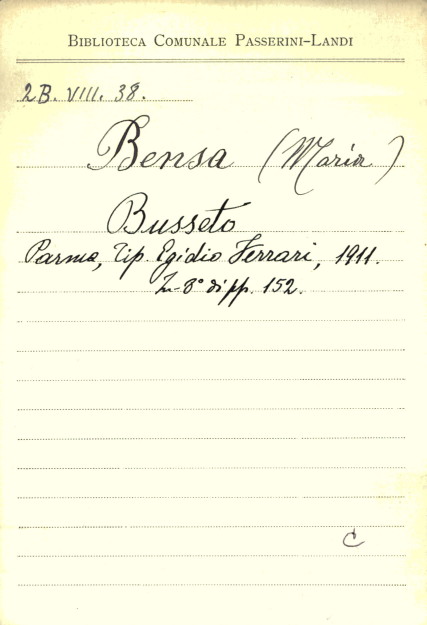 BIBLIOTECA COMUNALE PASSERINI-LANDI
2B. VIII. 38.
Bensa (Maria)
Busseto
Parma, Tip. Egidio Ferrari, 1911.
In-8° di pp. 152.
C